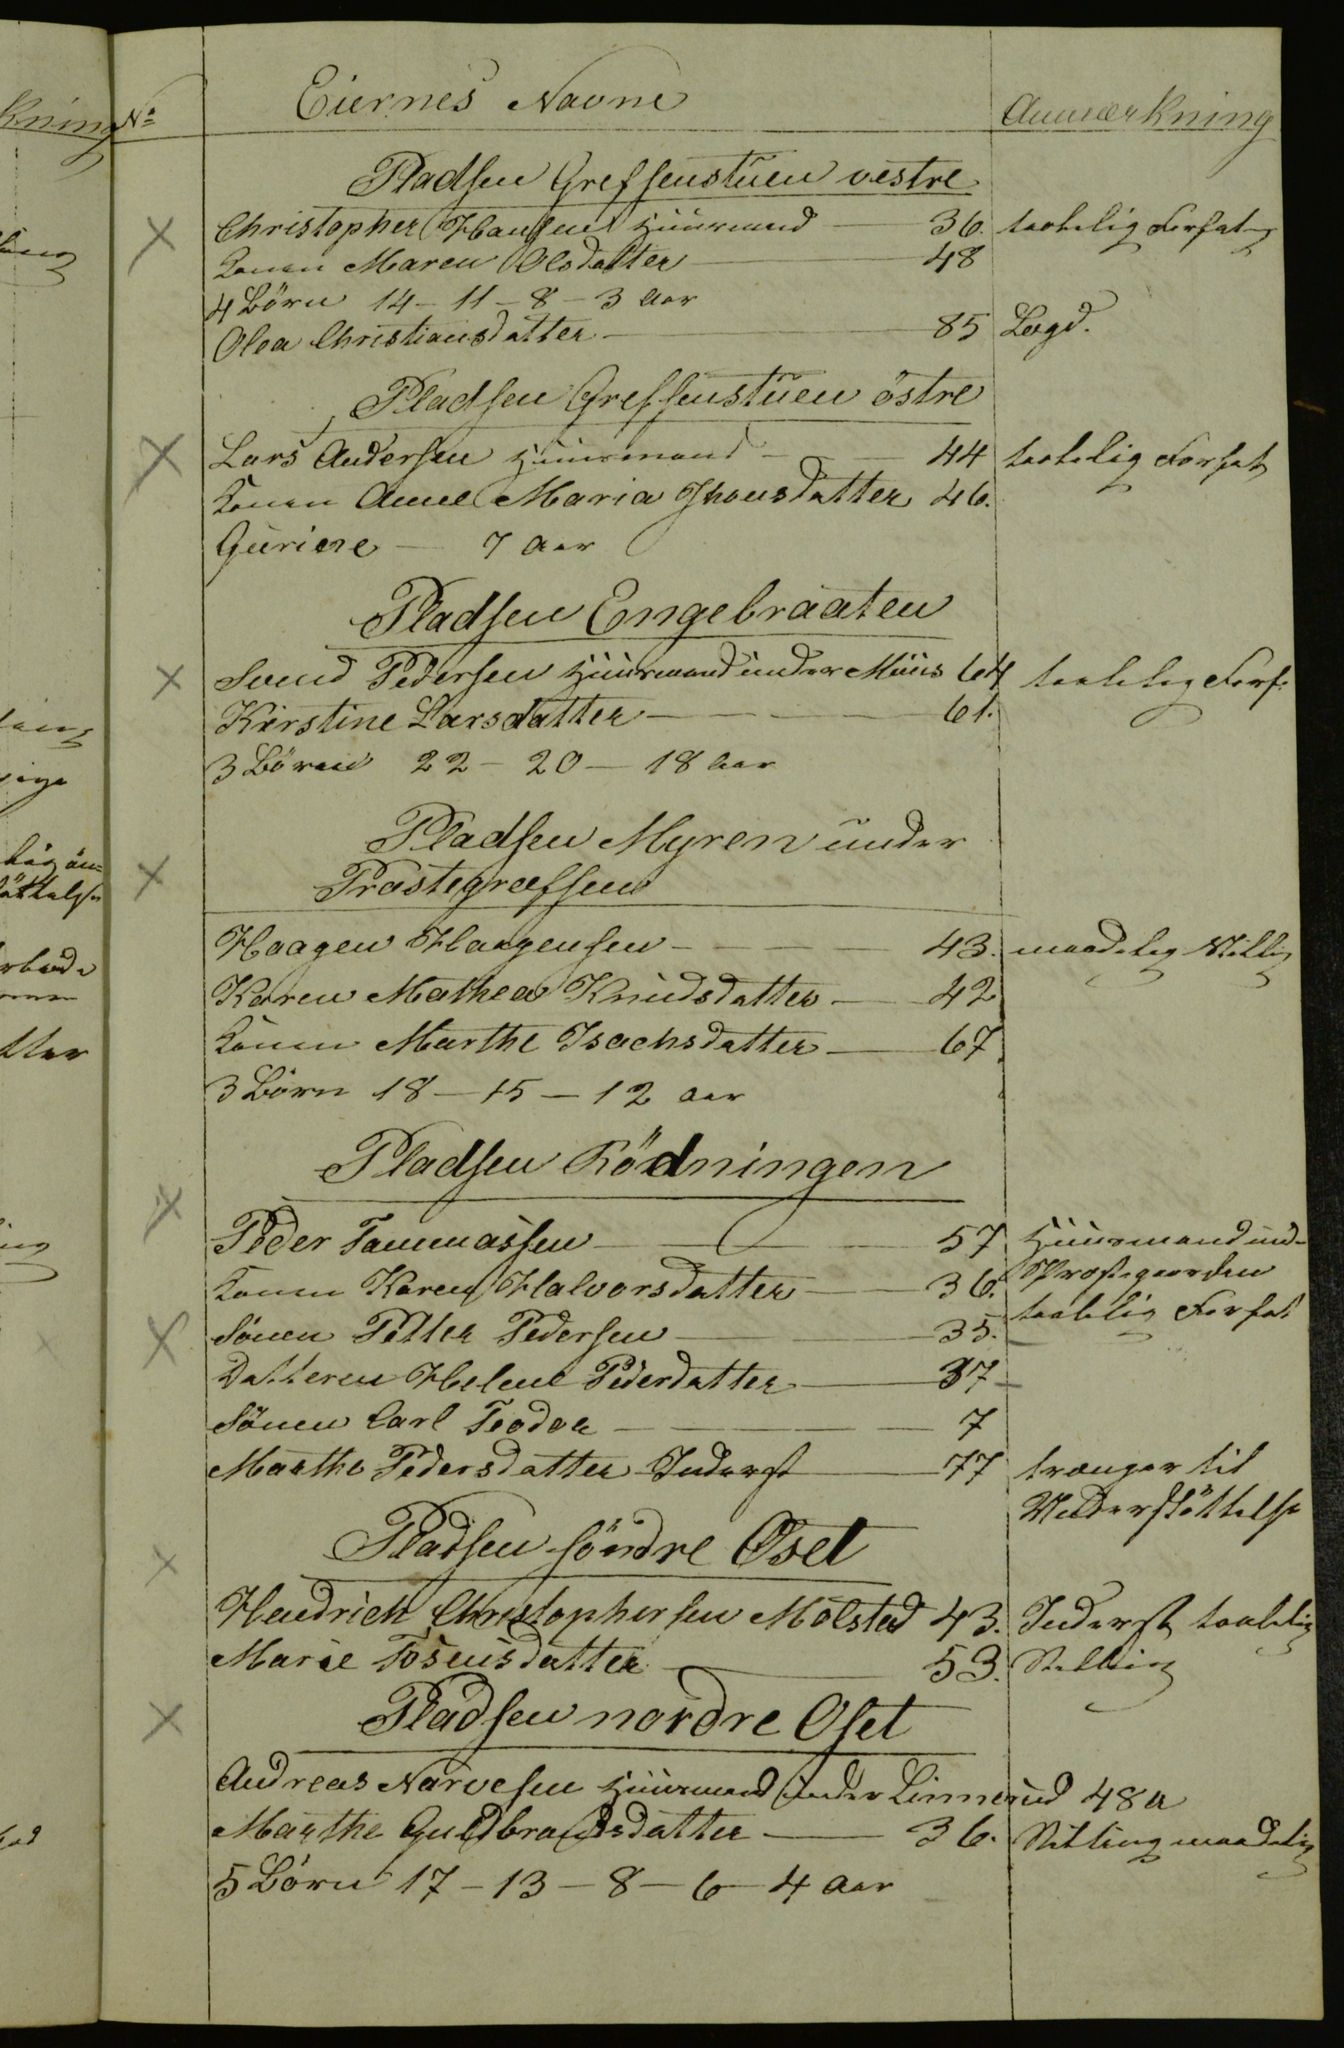 No Eiernes Navne Anmærkning
Pladsen Grefsenstuen vestre
Christopher Hansen Huusmand — 36. taalelig Forfat
Konen Maren Olsdatter — 48
4 Börn 14 - 11 - 8 - 3 Aar
Olea Christiansdatter — 85 Lægd.
Pladsen Grefsenstuen östre
Lars Andersen Huusmand — 44 taalelig Forfat
Konen Anne Maria Jhonsdatter 46.
Guriere — 7 Aar
Pladsen Engebraaten
Svend Pedersen Huusmand under Muus 64 taalelig Forf:
Kirstine Larsdatter — 61.
3 Börn 22 - 20 - 18 Aar
Pladsen Myren under
Præstegræfsen
Haagen Haagensen — 43. maadelig Stilling
Karen Mathea Knudsdatter — 42
Konen Marthe Isachsdatter — 67
3 Börn 18 - 15 - 12 Aar
Pladsen Rödningen
Peder Tammassen — 57 Huusmand und-
Konen Karen Halvorsdatter — 36. Præstegaarden
Sönen Petter Pedersen — 35. taalelig Forfat
Datteren Helene Pedersdatter — 37
Sönen Carl Teodor — 7
Marthe Pedersdatter Inderst — 77 trænger til
Understöttelse
Pladsen söndre Oset
Hendrich Christophersen Mölstad 43. Inderst taalelig
Marie Tosensdatter — 53. Stilling
Pladsen nordre Oset
Andreas Narvesen Huusmand under Linnerud 48 a
Marthe Guldbrandsdatter — 36. Stilling maadelig
5 Börn 17 - 13 - 8 - 6 - 4 Aar